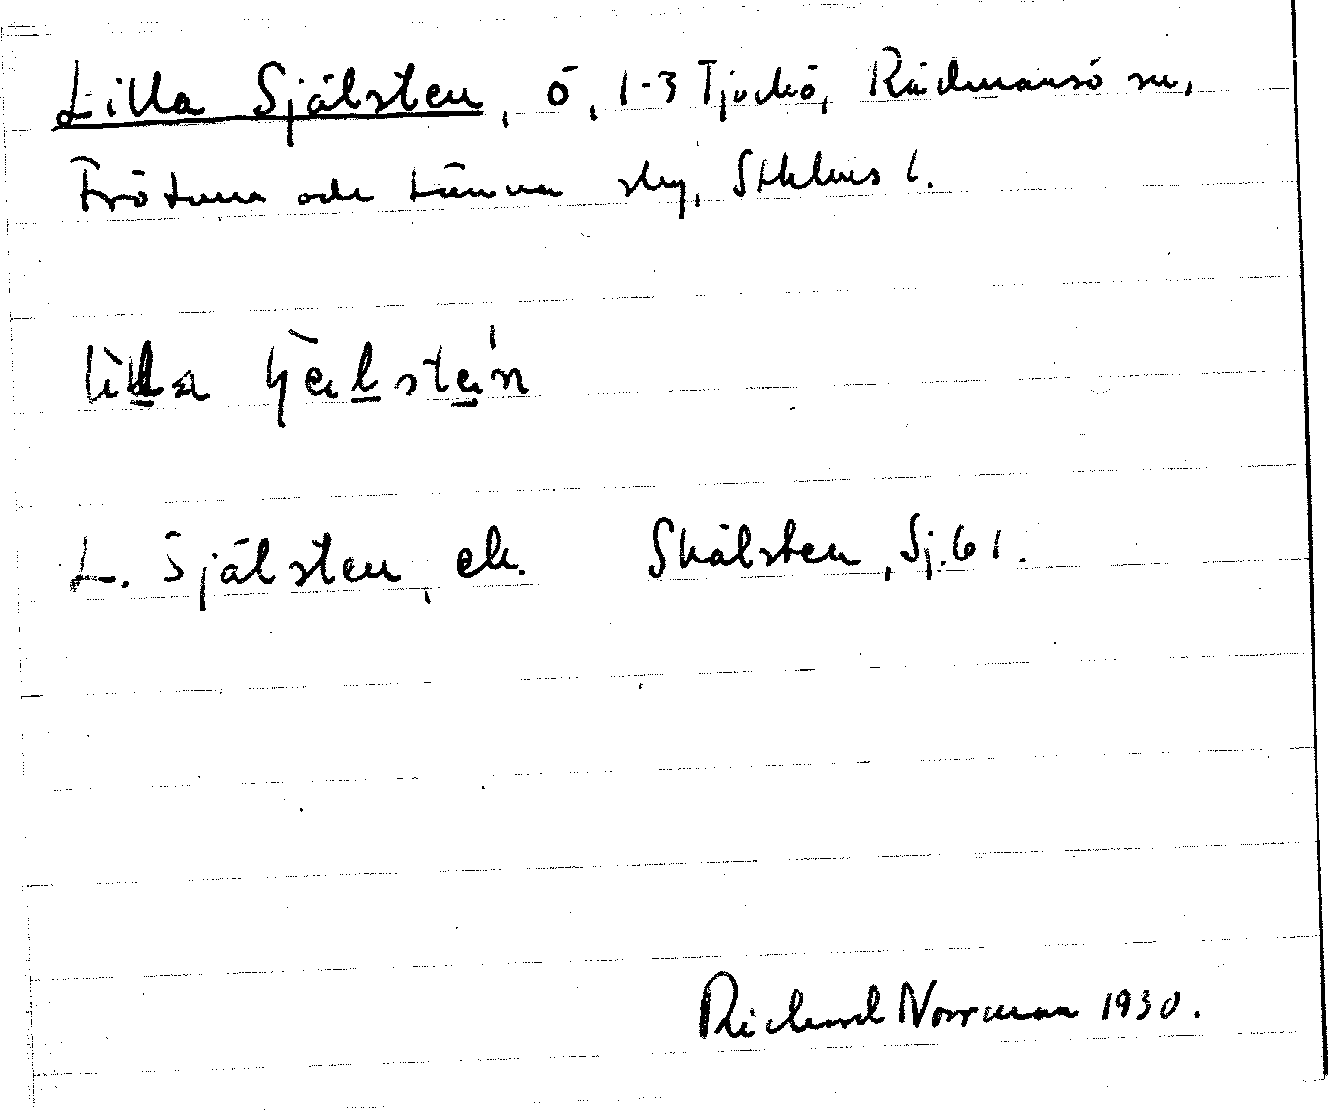 Lilla Själsten, ö, 1-3 Tjockö, Rådmansö sn,
Frötuna och Länna slg, Sthlms l.
L. Själsten, ek. Skälsten, Sj. 61.
Richard Norrman 1930.